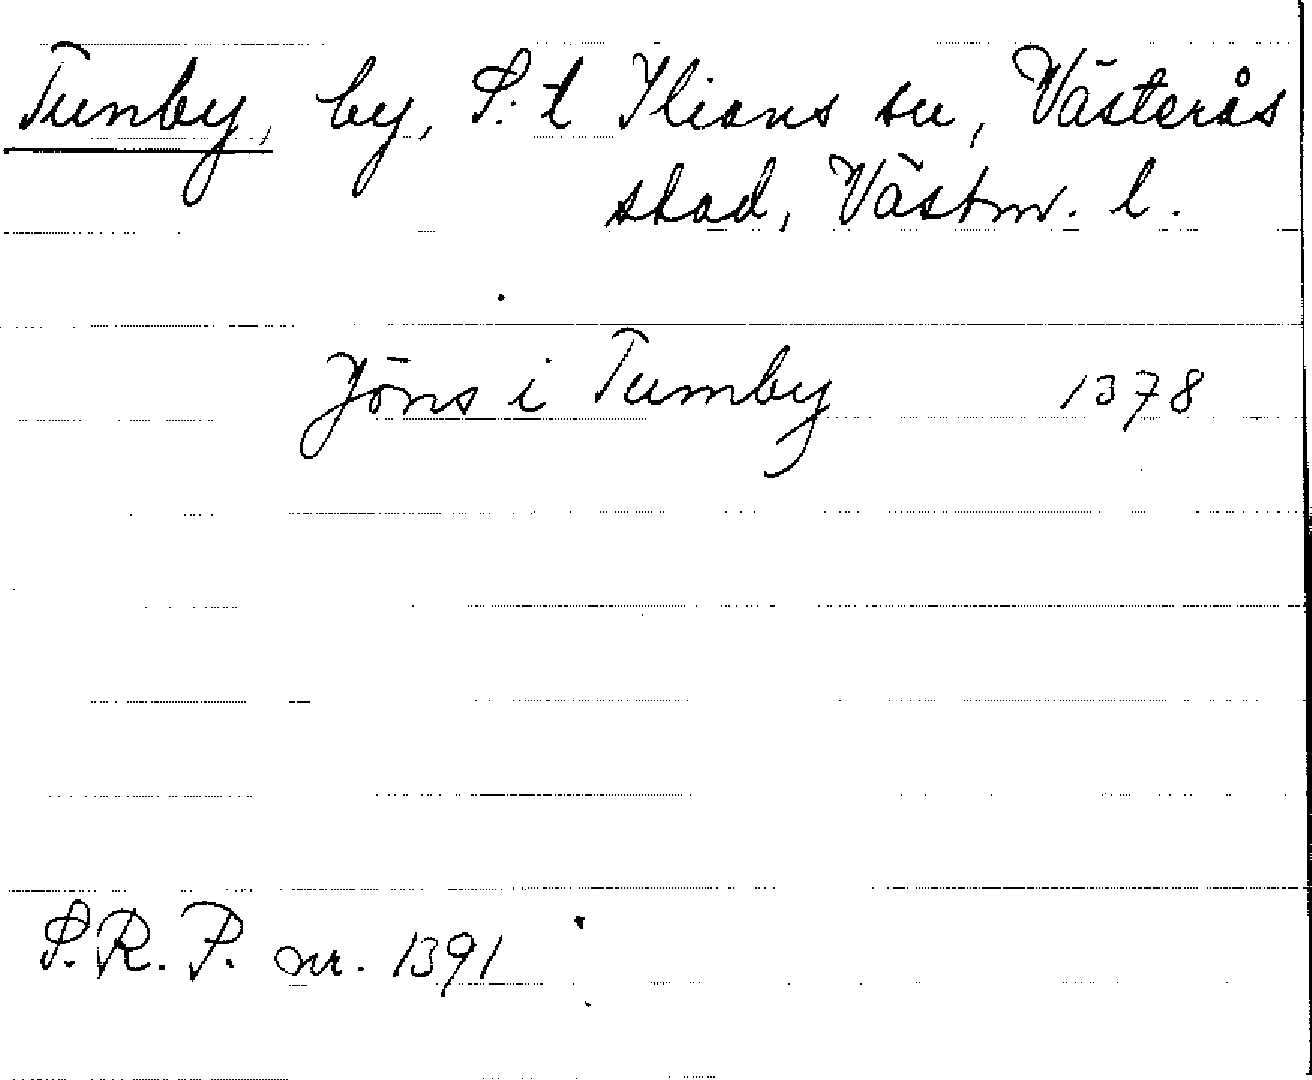 Tunby, by, S:t Ilians sn, Västerås
stad, Västm. l.
Jöns i Tumby 1378
S.R.P. nr. 1391